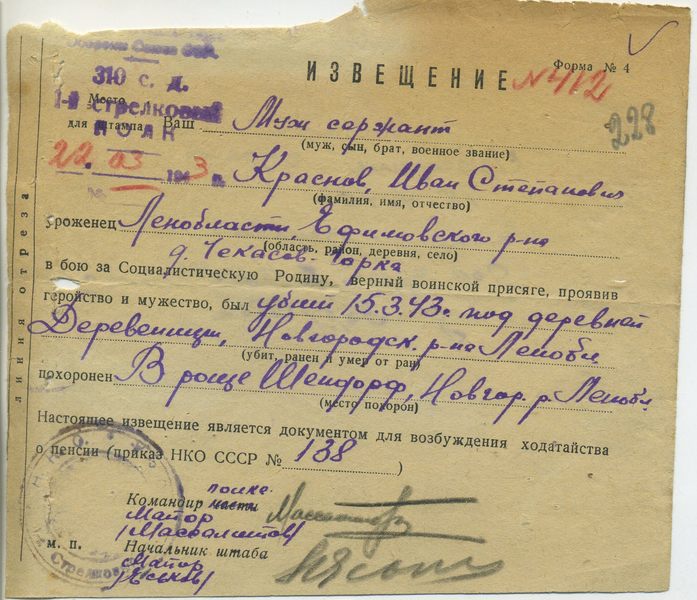 обороны Союза ССР
310 с. д.
1-й стрелковый
ПОЛК
Место
для штампа
22. 03 1943 г.
ИЗВЕЩЕНИЕ №412
Форма № 4
228
Ваш Муж сержант
(муж, сын, брат, военное звание)
Краснов, Иван Степанович
(фамилия, имя, отчество)
уроженец Ленобласти, Ефимовского р-на
(область, район, деревня, село)
д. Чекасов-Горка
в бою за Социалистическую Родину, верный воинской присяге, проявив
геройство и мужество, был убит 15.3.43г. под деревней
Деревеницы, Новгородск. р-на Ленобл
(убит, ранен и умер от ран)
похоронен В роще Шендорф, Новгор. р. Ленобл.
(место похорон)
Настоящее извещение является документом для возбуждения ходатайства
о пенсии (приказ НКО СССР № 138)
полка
Командир части
Майор
м. п.
Начальник штаба
Майор
линия отреза